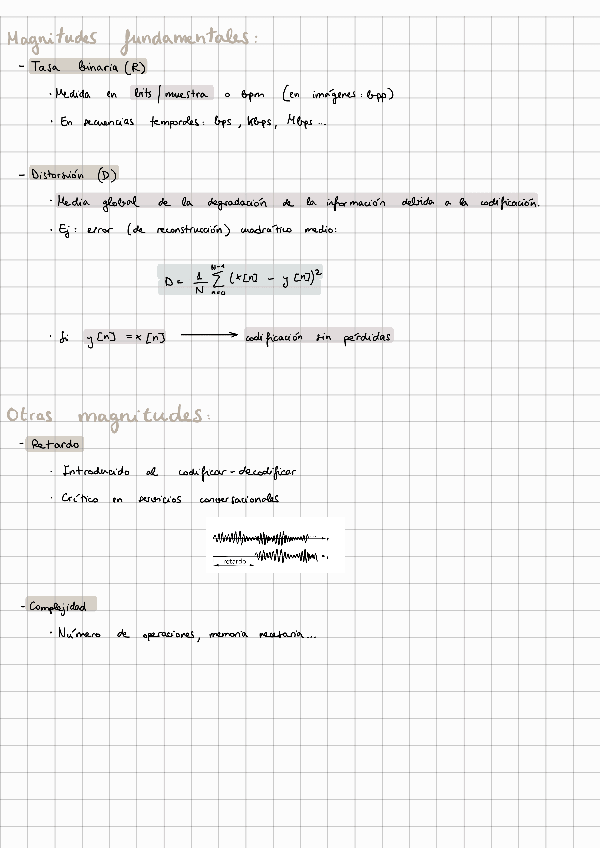 Magnitudes fundamentales:
- Tasa binaria (R)
· Medida en bits/muestra o bpm (en imágenes: bpp)
· En secuencias temporales: bps, Kbps, Mbps...
- Distorsión (D)
· Media global de la degradación de la información debida a la codificación.
· Ej: error (de reconstrucción) cuadrático medio:
D = 1/N ∑_{n=0}^{N-1} (x[n] - y[n])²
· Si y[n] = x[n] ⟶ codificación sin pérdidas
Otras magnitudes:
- Retardo
· Introducido al codificar-decodificar
· Crítico en servicios conversacionales
retardo
- Complejidad
· Número de operaciones, memoria necesaria...